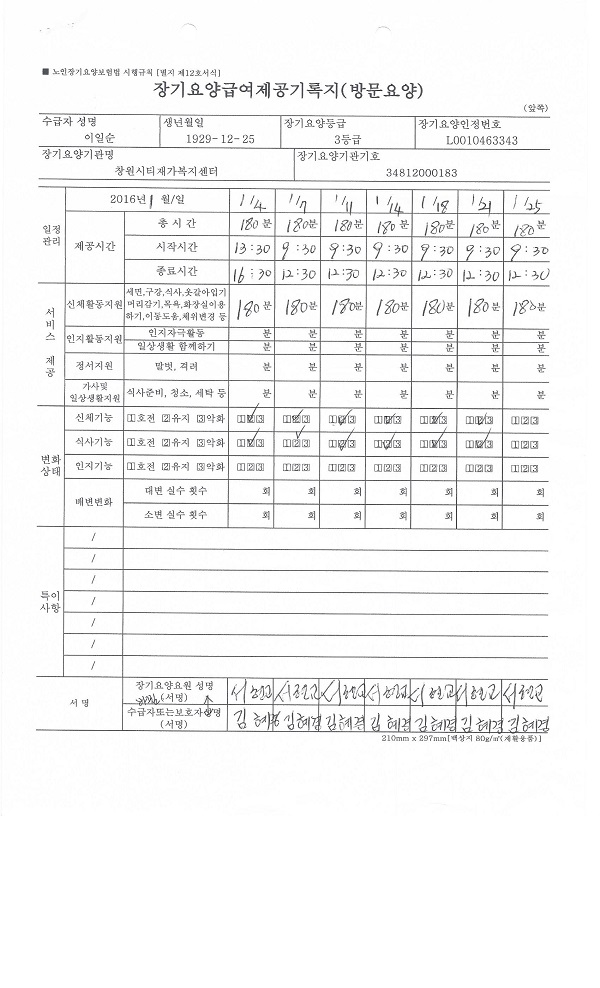 ■ 노인장기요양보험법 시행규칙 [별지 제12호서식]
장기요양급여제공기록지(방문요양)
(앞쪽)
수급자 성명 생년월일 장기요양등급 장기요양인정번호
이일순 1929-12-25 3등급 L0010463343
장기요양기관명 장기요양기관기호
창원시티재가복지센터 34812000183
2016년 1 월/일 1/4 1/7 1/11 1/14 1/18 1/21 1/25
일정관리 제공시간 총 시 간 180분 180분 180분 180분 180분 180분 180분
시작시간 13:30 9:30 9:30 9:30 9:30 9:30 9:30
종료시간 16:30 12:30 12:30 12:30 12:30 12:30 12:30
서비스 제공
신체활동지원 세면,구강,식사,옷갈아입기
머리감기,목욕,화장실이용 180분 180분 180분 180분 180분 180분 180분
하기,이동도움,체위변경 등
인지활동지원 인지자극활동 분 분 분 분 분 분 분
일상생활 함께하기 분 분 분 분 분 분 분
정서지원 말벗, 격려 분 분 분 분 분 분 분
가사및
일상생활지원 식사준비, 청소, 세탁 등 분 분 분 분 분 분 분
변화상태
신체기능 1호전 2유지 3악화 123 123 123 123 123 123 123
식사기능 1호전 2유지 3악화 123 123 123 123 123 123 123
인지기능 1호전 2유지 3악화 123 123 123 123 123 123 123
배변변화 대변 실수 횟수 회 회 회 회 회 회 회
소변 실수 횟수 회 회 회 회 회 회 회
특이사항
/
/
/
/
/
/
/
서 명
장기요양요원 성명
(서명)
수급자또는보호자성명 김혜경 김혜경 김혜경 김혜경 김혜경 김혜경 김혜경
(서명)
210mm x 297mm[백상지 80g/㎡(재활용품)]